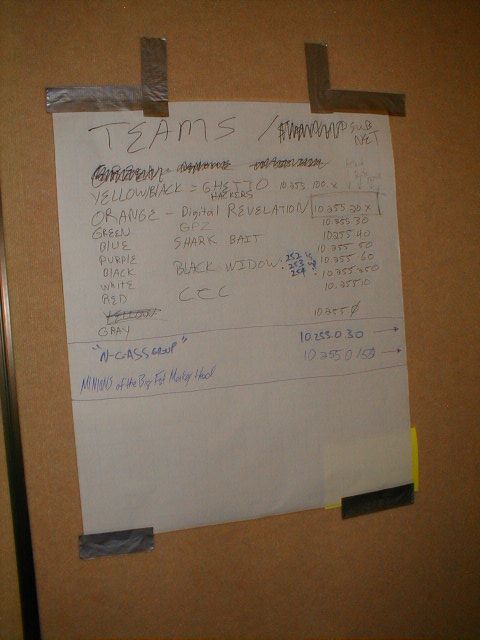 TEAMS / SUB NET
YELLOW/BLACK = GHETTO HACKERS 10.255.100.X
ORANGE - Digital REVELATION 10.255.20.X
GREEN GPZ 10.255.30
BLUE SHARK BAIT 10.255.40
PURPLE 10.255 50
BLACK BLACK WIDOW 10.255 60
WHITE 10.255.250
RED CTC 10.255.10
YELLOW
GRAY 10.255 0
252
253
254
"N-C-ASS GROUP" 10.255.0.30 →
MINIONS of the Big Fat Monkey Head 10 255.0.150 →